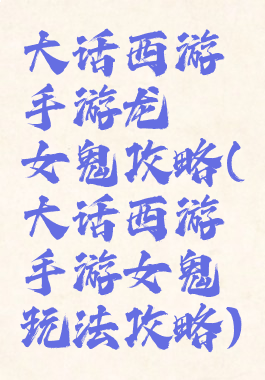 大话西游
手游龙
女鬼攻略(
大话西游
手游女鬼
玩法攻略)